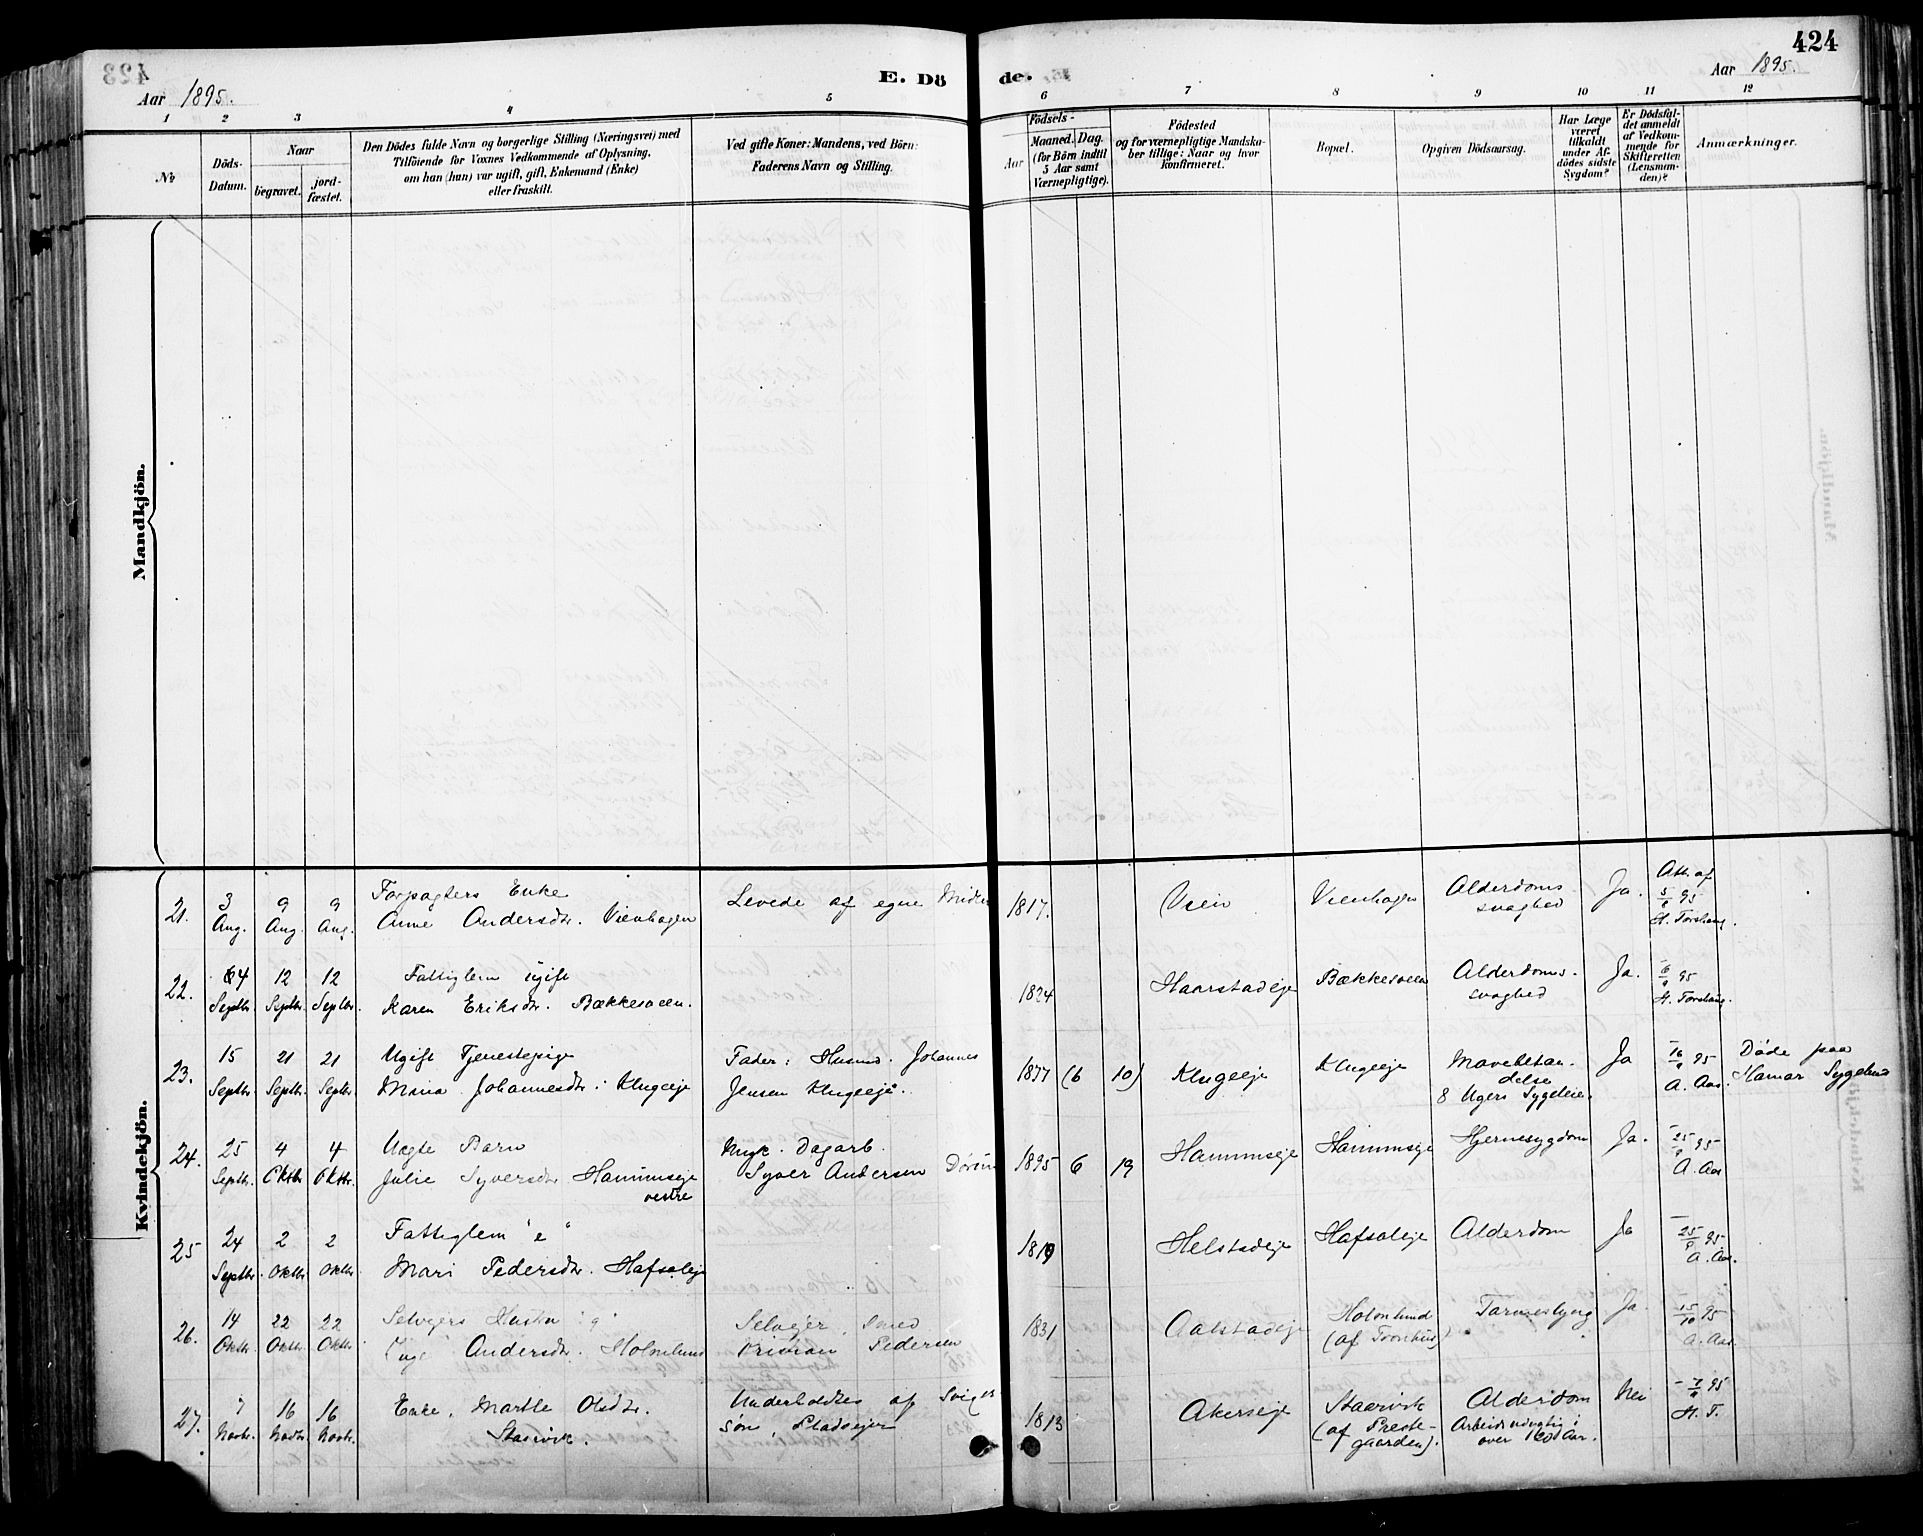 424
Aar 1895.
E. Dö
de.
Aar 1895.
1 2 3 4 5 6 7 8 9 10 11 12
No
Döds-
Datum.
Naar
begravet.
jord-
fæstet.
Den Dödes fulde Navn og borgerlige Stilling (Næringsvei) med
Tilföiende for Voxnes Vedkommende af Oplysning,
om han (hun) var ugift, gift, Enkemand (Enke)
eller fraskilt.
Ved gifte Koner: Mandens, ved Börn:
Faderens Navn og Stilling.
Födsels-
Aar
Maaned.
Dag.
(for Börn indtil
5 Aar samt
Værnepligtige).
Födested
og for værnepligtige Mandska-
ber tillige: Naar og hvor
konfirmeret.
Bopæl.
Opgiven Dödsaarsag.
Har Læge
været
tilkaldt
under Af-
dödes sidste
Sygdom?
Er Dödsfal-
det anmeldt
af Vedkom-
mende for
Skifteretten
(Lensman-
den)?
Anmærkninger.
Mandkjön.
Kvindekjön.
21. 3 Aug. 9 Aug. 9 Aug.
Forpagters Enke
Anne Andersdtr. Vienhagen
Levede af egne Midler
1817.
Vien
Vienhagen
Alderdoms
svaghed
Ja.
Att. af
5/8 95
H. Torshaug.
22. 4 Septbr. 12 Septbr. 12 Septbr.
Fattiglem ugift
Karen Eriksdtr. Bækkesveen.
1824
Haarstadeje
Bækkesveen
Alderdoms-
svaghed
Ja.
6/9 95
H. Torshaug.
23. 15 Septbr. 21 Septbr. 21 Septbr.
Ugift Tjenestepige
Mina Johannesdtr. Klugeeje
Fader: Husmd. Johannes
Jensen Klugeeje.
1877 (6 10)
Klugeeje
Klugeeje
Mavebetæn-
delse
8 Ugers Sygeleie.
Ja
16/9 95
A. Aas.
Döde paa
Hamar Sygehus
24. 25 Septbr. 4 Oktbr. 4 Oktbr.
Uægte Barn
Julie Syversdtr. Hammmseje
vestre
Ungk. Dagarb.
Syver Andersen
1895 6 19
Hammmseje
Hammmseje
Hjernesygdom
Ja.
25/9 95
A. Aas
25 24 Septbr. 2 Oktbr. 2 Oktbr.
Fattiglem "e"
Mari Pedersdtr. Hafsaleje
1819
Helstadeje
Hafsaleje
Alderdom
Ja
25/9 95
A. Aas.
26. 14 Oktbr. 22 Oktbr. 22 Oktbr.
Selvejers Hustru "g"
Andersdtr. Holmlund
Selvejer, Smed
Kristian Pedersen
1831
Aalstadeje
Holmlund
(af Torshus)
Tarmesbyrg
Ja.
15/10 95
A. Aas.
27. 7 Novbr. 16 Novbr. 16 Novbr.
Enke, Marthe Olsdtr.
Staarvik.
Underholdtes af
Søn, Pladsejer
1813
Akerseje
Staarvik
(af Preste-
gaarden).
Alderdom
Arbeidsudygtig i
over 20 Aar.
Nei
95
H. T.